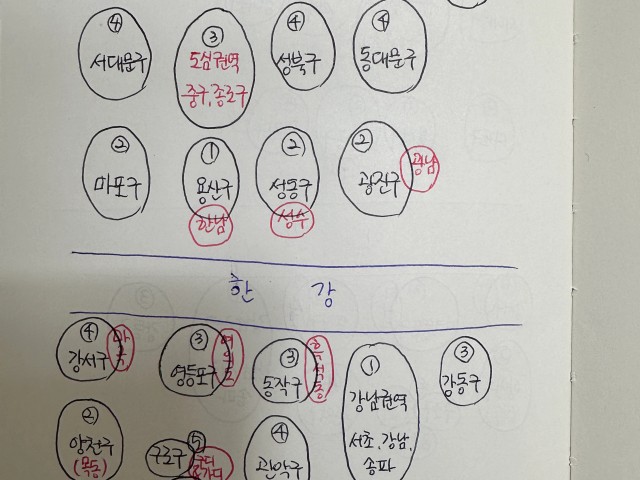 ④
서대문구
③
도심권역
중구,종로구
④
성북구
④
동대문구
②
마포구
①
용산구
한남
②
성동구
성수
②
광진구
광남
한 강
④
강서구
마곡
③
영등포구
여의도
③
동작구
흑석동
①
강남권역
서초,강남,
송파
③
강동구
②
양천구
(목동)
⑤
구로구
구디
가디
④
관악구